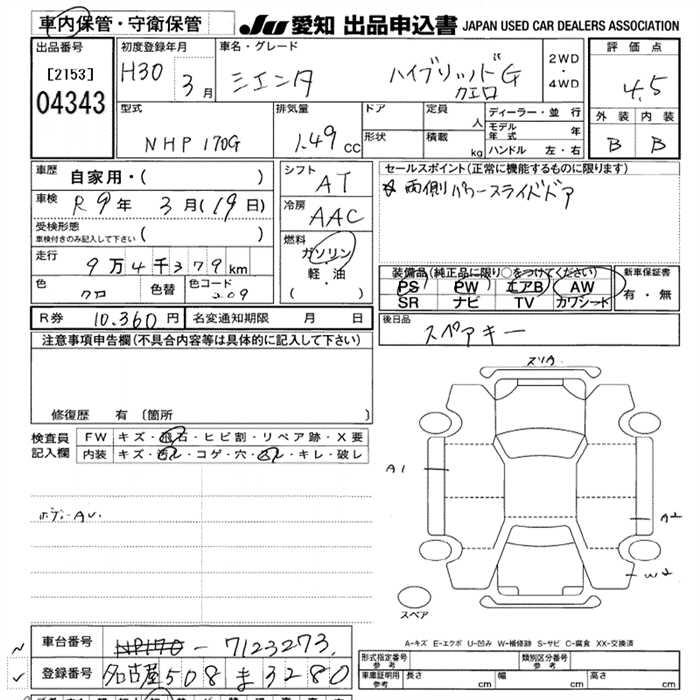 車内保管・守衛保管 JU 愛知 出品申込書 JAPAN USED CAR DEALERS ASSOCIATION
出品番号 [2153] 04343
初度登録年月 H30 3月
車名・グレード シエンタ ハイブリッドG クエロ
2WD・4WD
評価点 4.5
外装 内装
B B
型式 NHP170G
排気量 1.49 cc
ドア 形状
定員 人 積載 kg
ディーラー・並行
モデル年式 年
ハンドル 左・右
車歴 自家用・( )
車検 R9年 3月(19日)
受検形態 車検付きのみ記入して下さい ( )
走行 9万4千379km
色 クロ 色替 色コード 209
シフト AT
冷房 AAC
燃料 ガソリン
軽・油
( ・ )
セールスポイント(正常に機能するものに限ります)
両側パワースライドドア
装備品(純正品に限り○をつけてください)
PS PW エアB AW
SR ナビ TV カワシート
新車保証書 有・無
R券 10.360円 名変通知期限 月 日
後日品 スペアキー
注意事項申告欄(不具合内容等は具体的に記入して下さい)
修復歴 有〔箇所 〕
検査員記入欄
FW キズ・飛石・ヒビ割・リペア跡・X要
内装 キズ・汚レ・コゲ・穴・スレ・キレ・破レ
スリキ
A1
A2
W2
スペア
A-キズ E-エクボ U-凹み W-補修跡 S-サビ C-腐食 XX-交換済
車台番号 NP170-7123273
登録番号 名古屋508ま3280
形式指定番号 参考 類別区分番号 参考
車庫証明用 参考 長さ cm 幅 cm 高さ cm